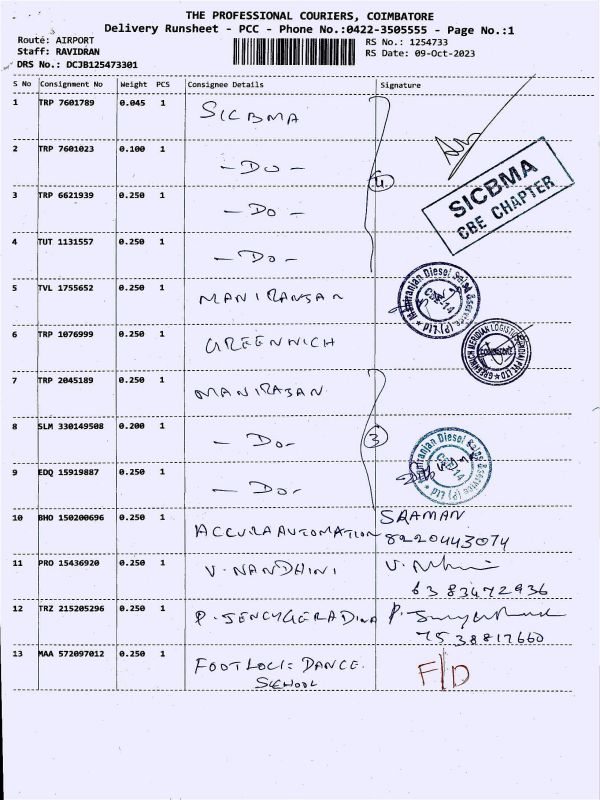 THE PROFESSIONAL COURIERS, COIMBATORE
Delivery Runsheet - PCC - Phone No.:0422-3505555 - Page No.:1
Route: AIRPORT
Staff: RAVIDRAN
DRS No.: DCJB125473301
RS No.: 1254733
RS Date: 09-Oct-2023
S No Consignment No Weight PCS Consignee Details Signature
1 TRP 7601789 0.045 1 SICBMA
2 TRP 7601023 0.100 1 - Do -
4
SICBMA
CBE CHAPTER
3 TRP 6621939 0.250 1 - Do -
4 TUT 1131557 0.250 1 - Do -
5 TVL 1755652 0.250 1 MANIRANJAN
CBE-14
6 TRP 1076999 0.250 1 GREENWICH
7 TRP 2045189 0.250 1 MANIRAJAN
8 SLM 330149508 0.200 1 - Do -
3
CBE-14
9 EDQ 15919887 0.250 1 - Do -
10 BHO 150200696 0.250 1 ACCURA AUTOMATION SRAMAN
8220443074
11 PRO 15436920 0.250 1 V. NANDHINI
6383472936
12 TRZ 215205296 0.250 1 P. JENCYGERADINA
7538817660
13 MAA 572097012 0.250 1 FOOTLOCI= DANCE F/D
SCHOOL